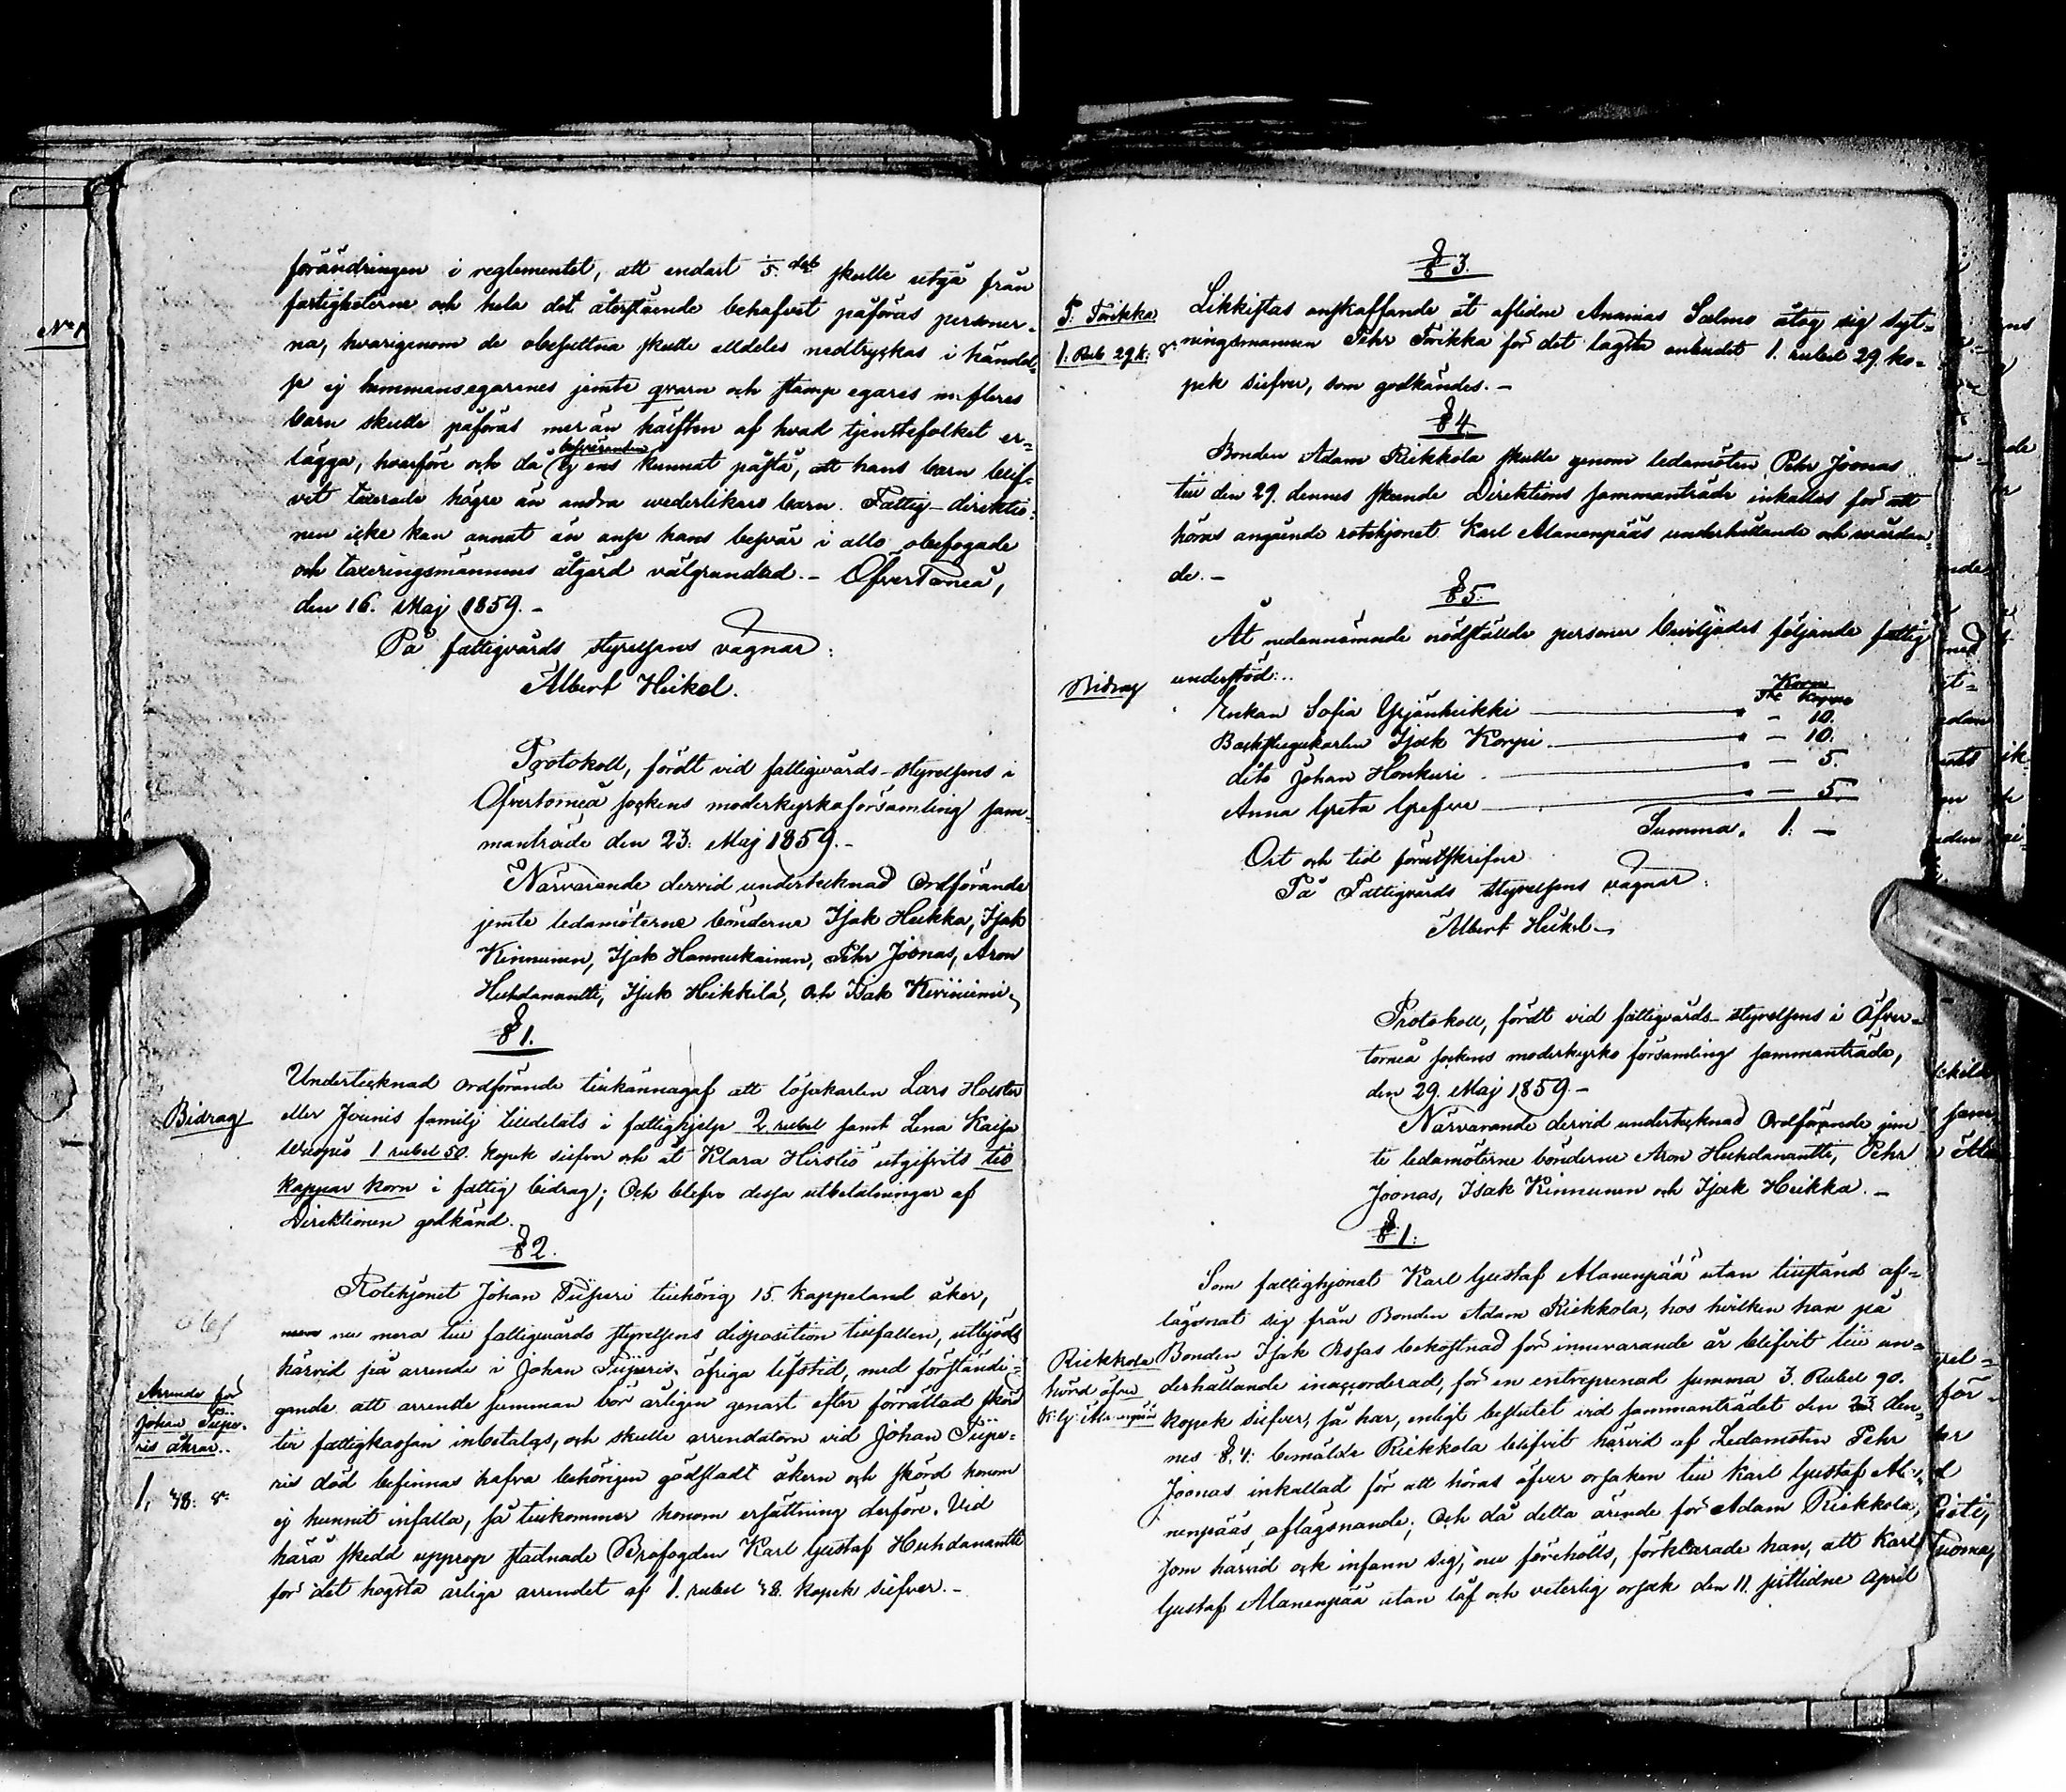 förändringen i reglementet, att endast 1/5 del skulle utgå från
fastigheterne och hela det återstående behofvet påföras personer-
na, hvarigenom de obesuttna skulle alldeles nedtryckas i händel-
se ej hemmansegarenes jemte qvarn och stamp egares m. fleres
barn skulle påföras mer än hälften af hvad tjenstefolket er-
lägga, hvarföre och då besväranden ej ens kunnat påstå, att hans barn blif-
vit taxerade högre än andra wederlikars barn. Fattig-direktio-
nen icke kan annat än anse hans besvär i allo obefogade
och taxeringsmännens åtgärd välgrundad.- Öfvertorneå,
den 16. Maj 1859.-
På fattigvårds styrelsens vägnar:
Albert Heikel.
Protokoll, fördt vid fattigvårds-styrelsens i
Öfvertorneå sockens moderkyrkoförsamling sam-
manträde den 23. Maj 1859.-
Närvarande dervid undertecknad Ordförande
jemte ledamöterne bönderne Isak Heikka, Isak
Kinnunen, Isak Hannukainen, Pehr Joonas, Aron
Huhdanantti, Isak Heikkilä, och Isak Kiviniemi.
§ 1.
Undertecknad ordförande tillkännagaf att lösakarlen Lars Holster
Bidrag
eller Jounis familj tilldelats i fattighjelp 2 rubel samt Lena Kaisa
1 rubel 50. kopek silfver och åt Klara Hirstiö utgifvits tio
kappar korn i fattig bidrag; Och blefvo dessa utbetalningar af
Direktionen godkänd.
§ 2.
Rotehjonet Johan Tüperi tillhörig 15. kappeland åker,
nu mera till fattigvårds styrelsens disposition tillfallen, utbjöds
härvid på arrende i Johan Tüperis öfriga lifstid, med förständi-
Arrende för
Johan Tüpe-
ris åkrar..
1, 48. sr.
gande att arrende summan bör årligen genast efter förrättad skörd
till fattigkassan inbetalas, och skulle arrendatorn vid Johan Tüpe-
ris död befinnas hafva behörigen gödsladt åkern och skörd honom
ej hunnit infalla, så tillkommer honom ersättning derföre. Vid
härå skedd upprop stadnade Brofogden Karl Gustaf Huhdanantti
för det högsta årliga arrendet af 1. rubel 48. kopek silfver.-
§ 3.
P: Torikka
1. Rub 29 k: sr
Likkistas anskaffande åt aflidne Ananias Salmo åtog sig syt-
ningsmannen Pehr Torikka för det lägsta anbudet 1. rubel 29. ko-
pek silfver, som godkändes.-
§ 4.
Bonden Adam Riekkola skulle genom ledamoten Pehr Joonas
till den 29. dennes skeende Direktions sammanträde inkallas för att
höras angående rotehjonet Karl Alanenpääs underhållande och vårdan-
de.-
§ 5.
Åt nedannämnde nödstälde personer beviljades följande fattig
Bidrag
understöd:..
Korn
Tnr Kappar
Enkan Sofia Yrjänheikki - 10.
Backstugukarlen Isak Korpi - 10.
dito Johan Honkuri - 5.
Anna Greta Grefve - 5.
Summa. 1. -
Ort och tid förutskrifne
På Fattigvårds styrelsens vägnar:
Albert Heikel.
Protokoll, fördt vid fattigvårds-styrelsens i Öfver-
torneå sockens moderkyrko församling sammanträde,
den 29. Maj 1859.-
Närvarande dervid undertecknad Ordförande jem-
te ledamöterne bönderne Aron Huhdanantti, Pehr
Joonas, Isak Kinnunen och Isak Heikka.-
§ 1:
Som fattighjonet Karl Gustaf Alanenpää utan tillstånd af-
lägsnat sig från Bonden Adam Riekkola, hos hvilken han på
Riekkola
hörd öfver
K. G: Alanenpää
Bonden Isak Assas bekostnad för innevarande år blifvit till un-
derhållande inaccorderad, för en entreprenad summa 3. Rubel 90.
kopek silfver, så har, enligt beslutet vid sammanträdet den 23 den-
nes § 4: bemälde Riekkola blifvit härvid af Ledamoten Pehr
Joonas inkallad för att höras öfver orsaken till Karl Gustaf Ala-
nenpääs aflägsnande; Och då detta ärende för Adam Riekkola,
som härvid ock infann sig, nu föreholls, förklarade han, att Karl
Gustaf Alanenpää utan lof och veterlig orsak den 11. sistlidne April